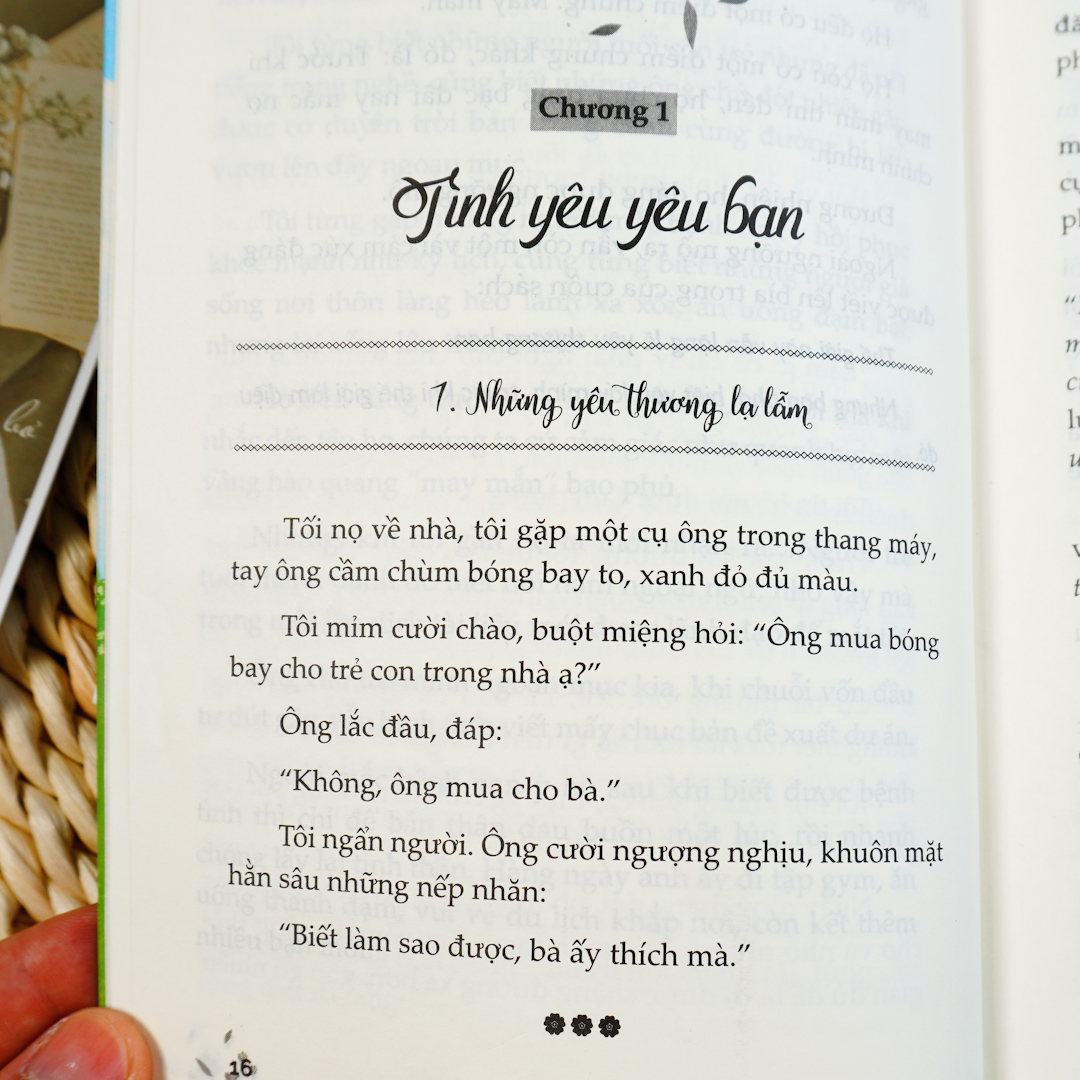 Chương 1
Tình yêu yêu bạn
1. Những yêu thương lạ lắm
Tối nọ về nhà, tôi gặp một cụ ông trong thang máy,
tay ông cầm chùm bóng bay to, xanh đỏ đủ màu.
Tôi mỉm cười chào, buột miệng hỏi: “Ông mua bóng
bay cho trẻ con trong nhà ạ?”
Ông lắc đầu, đáp:
“Không, ông mua cho bà.”
Tôi ngẩn người. Ông cười ngượng nghịu, khuôn mặt
hằn sâu những nếp nhăn:
“Biết làm sao được, bà ấy thích mà.”
16